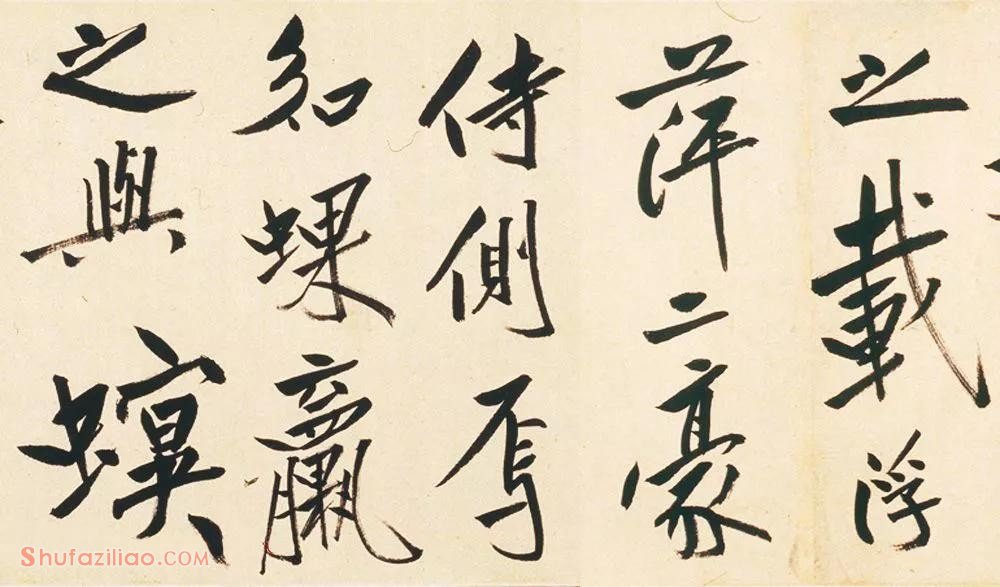 之載浮
萍二豪
侍側焉
如蜾蠃
之與螟
Shufaziliao.COM